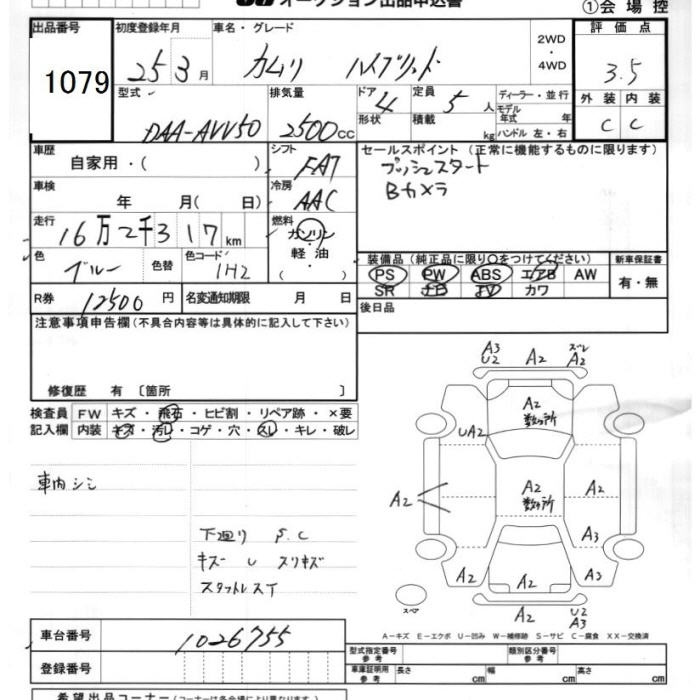 オークション出品申込書
①会場控
出品番号 初度登録年月 車名・グレード 2WD・4WD 評価点
1079 25年3月 カムリ ハイブリッド 3.5
型式 排気量 ドア 4 形状 定員 5人 積載 kg ディーラー・並行 モデル年式 年 ハンドル 左・右 外装 内装
DAA-AVV50 2500cc C C
車歴 自家用・( ) シフト FAT セールスポイント(正常に機能するものに限ります)
プッシュスタート
Bカメラ
車検 年 月( 日) 冷房 AAC
走行 16万2千317km 燃料 ガソリン・軽油・( )
色 ブルー 色替 色コード 1H2
装備品(純正品に限り○をつけてください) 新車保証書
PS PW ABS エアB AW 有・無
SR ナビ TV カワ
R券 12500円 名変通知期限 月 日
後日品
注意事項申告欄(不具合内容等は具体的に記入して下さい)
修復歴 有〔箇所 〕
検査員 FW キズ・飛石・ヒビ割・リペア跡・×要
記入欄 内装 キズ・汚レ・コゲ・穴・スレ・キレ・破レ
車内シミ
下廻り S.C
キズ U スリキズ
スタットレスタイ
A3 U2 A2 ズレ A2
A2 数ヶ所
UA2
A2 A2 数ヶ所 A2
A3
A2 A2 A3
スペア A2 U2 A3
A-キズ E-エクボ U-凹み W-補修跡 S-サビ C-腐食 XX-交換済
車台番号 1026755
型式指定番号 参考 類別区分番号 参考
登録番号 車庫証明用 参考 長さ cm 幅 cm 高さ cm
希望出品コーナー(コーナーは各会場により異なります)